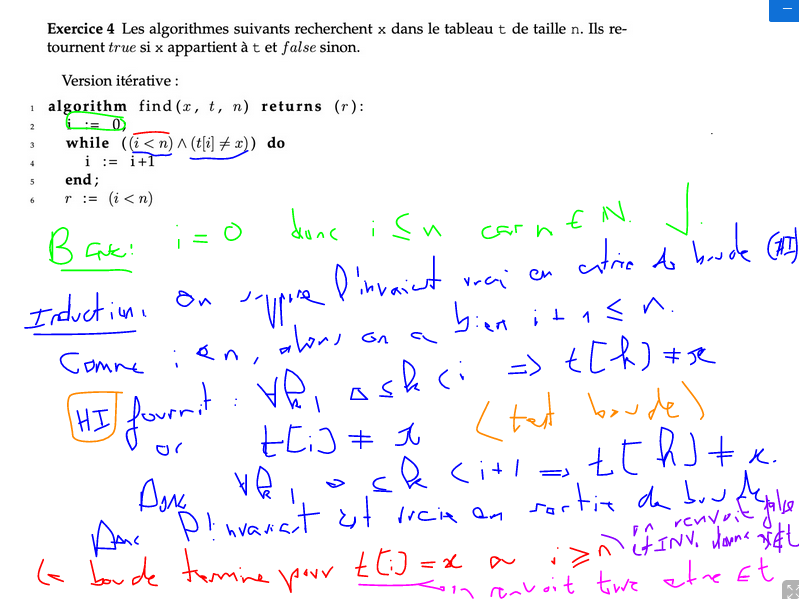 Exercice 4 Les algorithmes suivants recherchent x dans le tableau t de taille n. Ils re-
tournent true si x appartient à t et false sinon.
Version itérative :
1 algorithm find(x, t, n) returns (r):
2 i := 0;
3 while ((i < n) ∧ (t[i] ≠ x)) do
4 i := i+1
5 end;
6 r := (i < n)
Base: i = 0 donc i ≤ n car n ∈ ℕ. ✓.
Induction. On suppose l'invariant vrai en entrée de boucle (HI)
Comme i < n, alors on a bien i + 1 ≤ n.
HI fournit : ∀k, 0 ≤ k < i => t[k] ≠ x
or t[i] ≠ x (test boucle)
Donc ∀k, 0 ≤ k < i+1 => t[k] ≠ x.
Donc l'invariant est vrai en sortie de boucle
on renvoit false
et INV. donc x ∉ t
La boucle termine pour t[i] = x ou i ≥ n
on renvoit true et x ∈ t